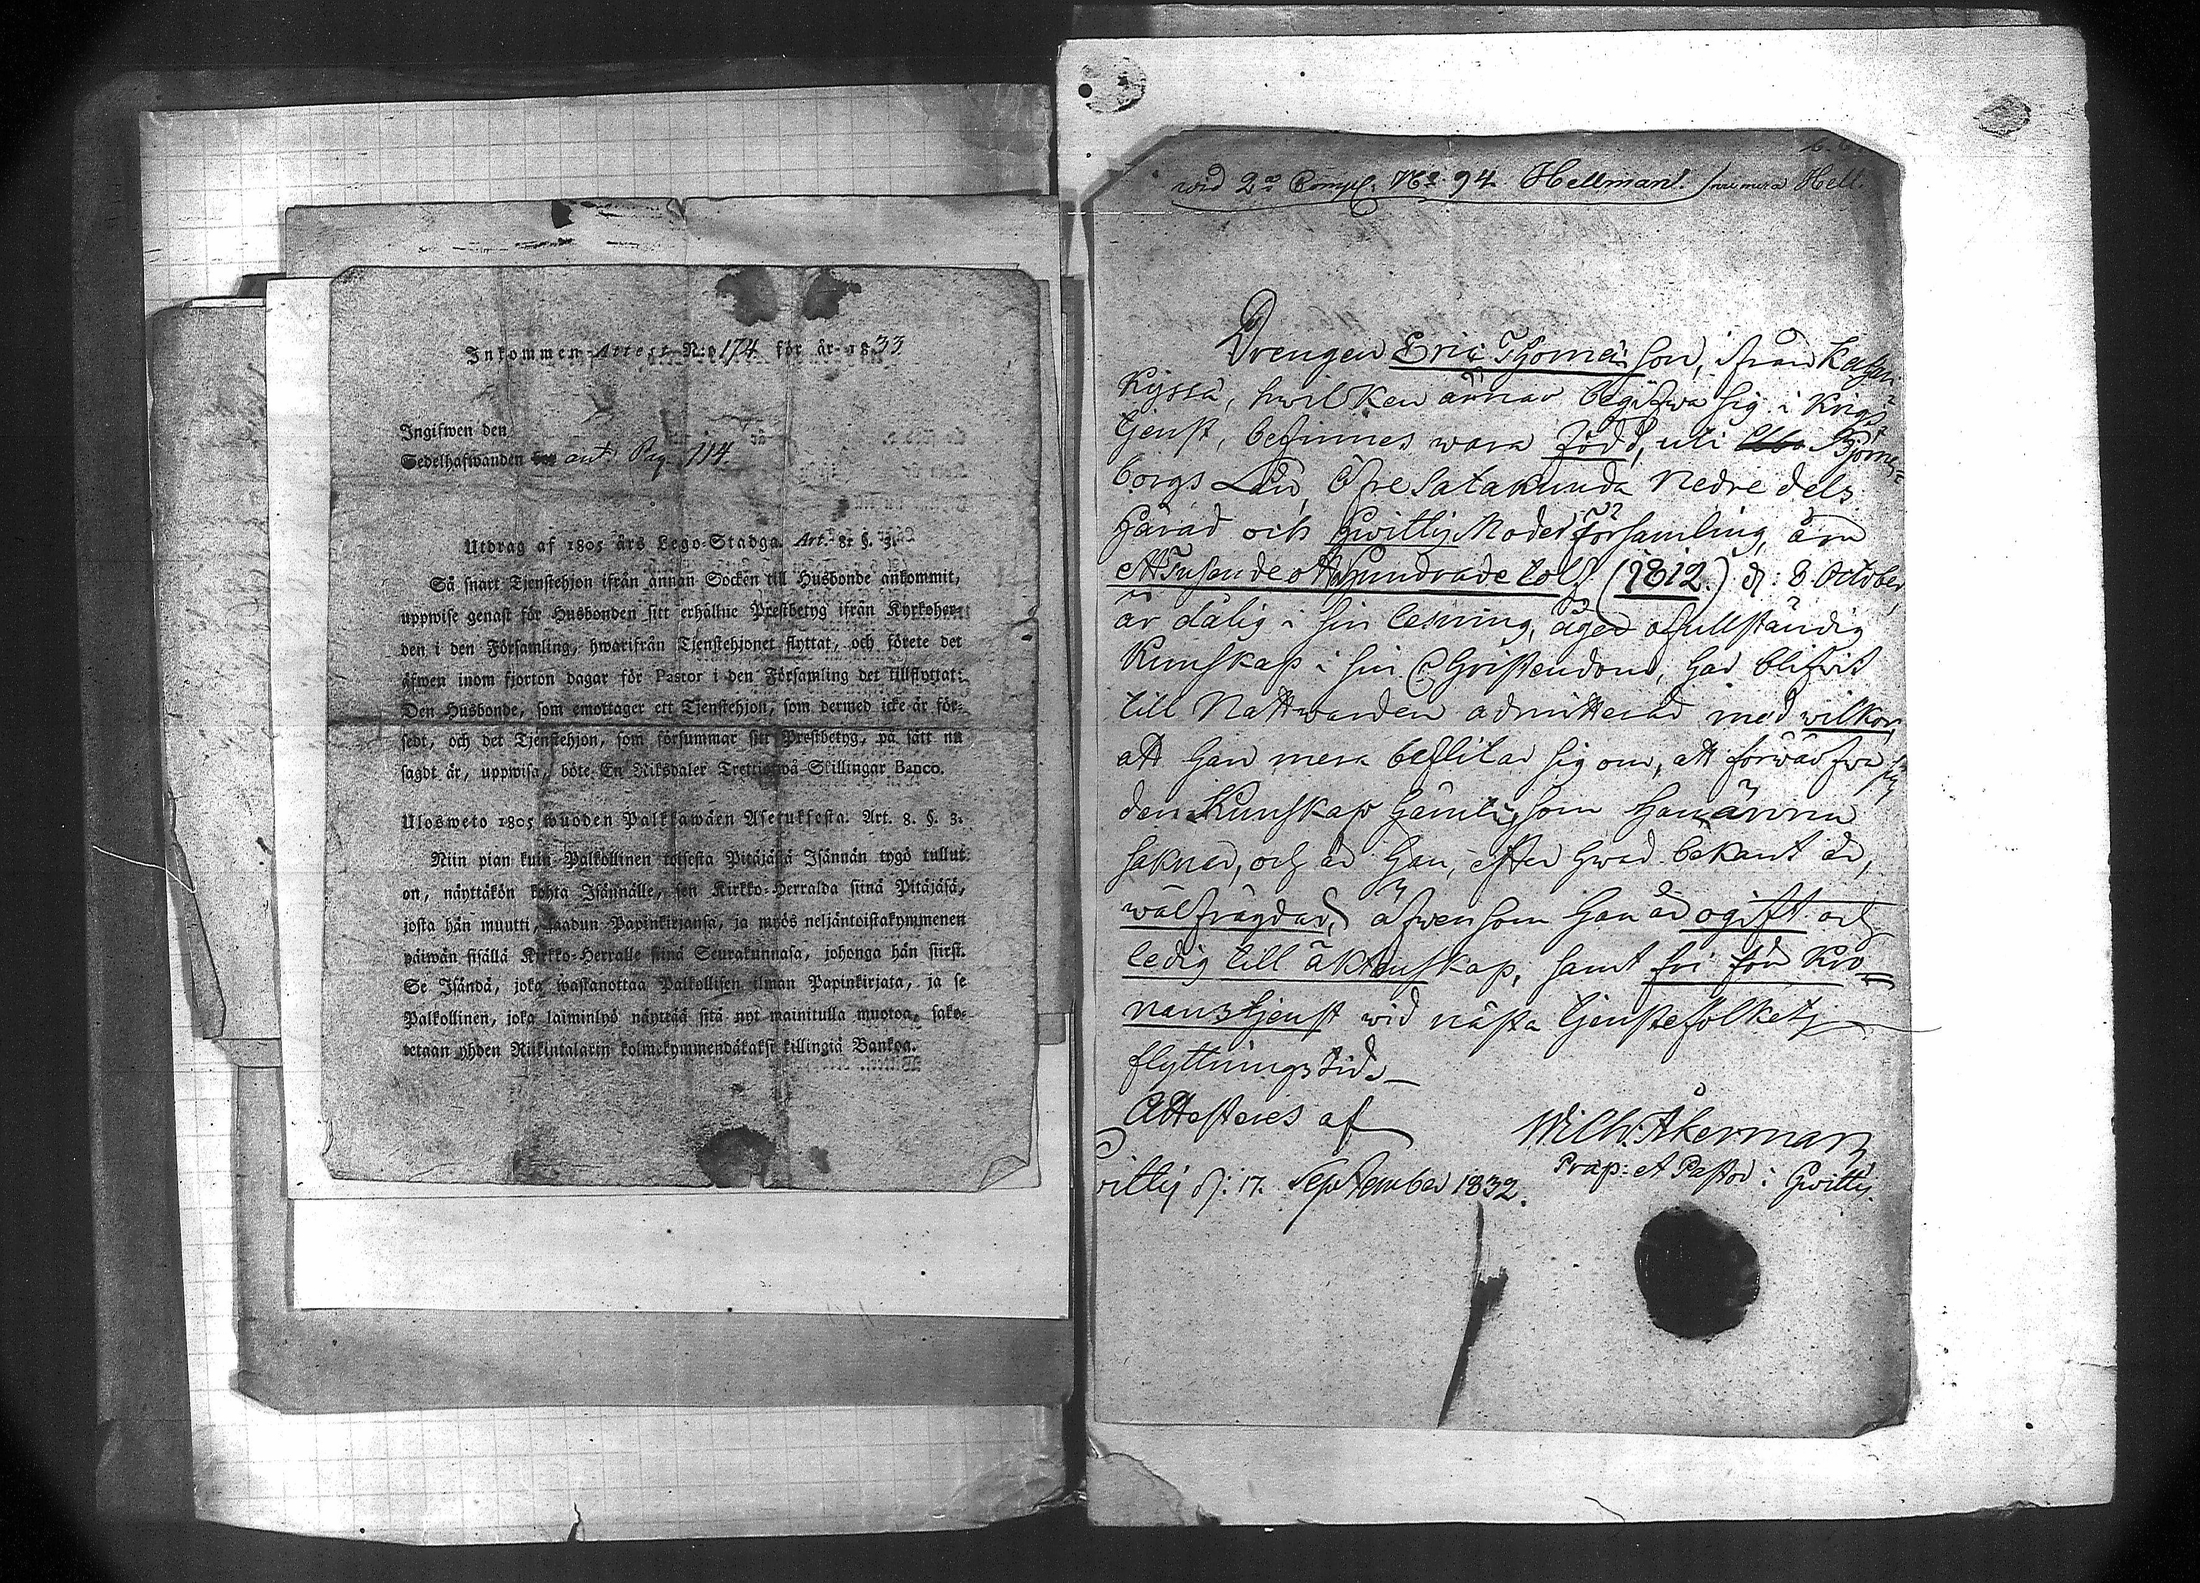 Inkommen Attest N:o 174 för år 1833
Ingifwen den
Sedelhafwanden ant. Pag. 114
Utdrag af 1805 års Lego-Stadga. Art. 8. §. 3.
Så snart Tjenstehjon ifrån annan Socken till Husbonde ankommit,
uppwise genast för Husbonden sitt erhållne Prestbetyg ifrån Kyrkoher-
den i den Församling, hwarifrån Tjenstehjonet flyttat, och förete det
äfwen inom fjorton dagar för Pastor i den Församling det tillflyttat.
Den Husbonde, som emottager ett Tjenstehjon, som dermed icke är för-
sedt, och det Tjenstehjon, som försummar sitt Prestbetyg, på sätt nu
sagdt är, uppwisa, böte En Riksdaler Trettiotwå Skillingar Banco.
Ulosweto 1805 wuoden Palkkawäen Asetuksesta. Art. 8. §. 3.
Niin pian kuin Palkollinen toisesta Pitäjästä Isännän tygö tullut
on, näyttäkön kohta Isännälle, sen Kirkko-Herralda siinä Pitäjäsä,
josta hän muutti, saadun Papinkirjansa, ja myös neljäntoistakymmenen
päiwän sisällä Kirkko-Herralle siinä Seurakunnasa, johonga hän siirst.
Se Isändä, joka wastanottaa Palkollisen ilman Papinkirjata, ja se
Palkollinen, joka laiminlyö näyttää sitä nyt mainitulla muotoa, sako-
tetaan yhden Riikintalarin kolmekymmendäkaksi killingiä Bankoa.
wid 2a Compl. No. 94 Hellman. numera Hell.
Drengen Eric Thomæ son, ifrån
Kyssä, hwilken ärnar begifwa sig i Krigs-
tjenst, befinnes wara född, uti Björne-
borgs Län, Öfre Satakunda Nedre dels
Härad och Hwittis Moder församling, åra
ettTusendeottaHundradetolf (1812.) d: 8 October,
är dålig i sin läsning, äger ofullständig
Kunskap i sin Christendom, har blifwit
till Nattwarden admitterad med wilkor,
att han mera beflitar sig om, att förwärfwa sig
den Kunskap häruti, som han ännu
saknar, och är han, efter hwad bekant är,
wälfrägdad, äfwensom han är ogift och
ledig till äktenskap, samt fri för Kro-
nanstjenst wid nästa tjenstefolkets
flyttningstid.
Attesteres af
Wilh: Åkerman
Præp: et Pastor i Hwittis.
wittis d: 17. September 1832.